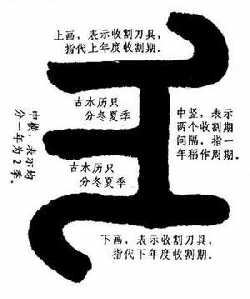 上画，表示收割刀具，
指代上年度收割期．
古木历只
分冬夏季
中横，表示均
分一年为2季．
中竖，表示
两个收割期
间隔，指一
年稻作周期．
古木历只
分冬夏季
下画，表示收割刀具，
指代下年度收割期．